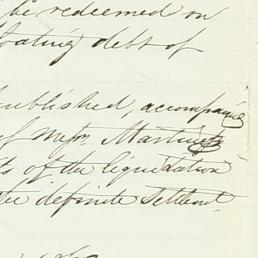 be redeemed on
floating debt of
published, accompanied
of Messrs. Martinez
ts of the liquidation
the definite settlent.